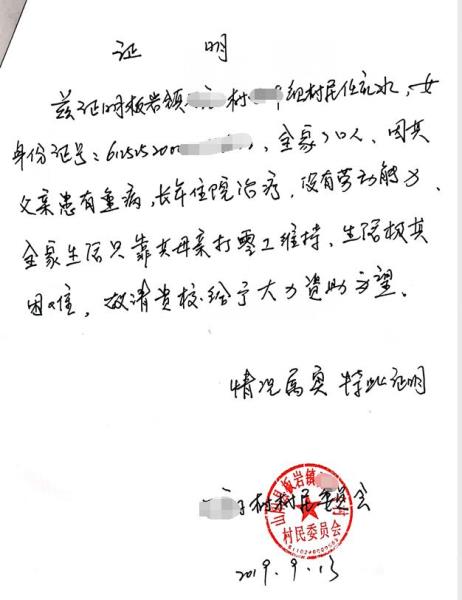 证 明
兹证明板岩镇 村 组村民任 水,女
身份证号:612525200 ,全家 口人、因其
父亲患有重病,长年住院治疗,没有劳动能力、
全家生活只靠其母亲打零工维持,生活极其
困难,敬请贵校给予大力资助为望、
情况属实 特此证明
村村民委员会
山阳县板岩镇 村
村民委员会
2019.9.13